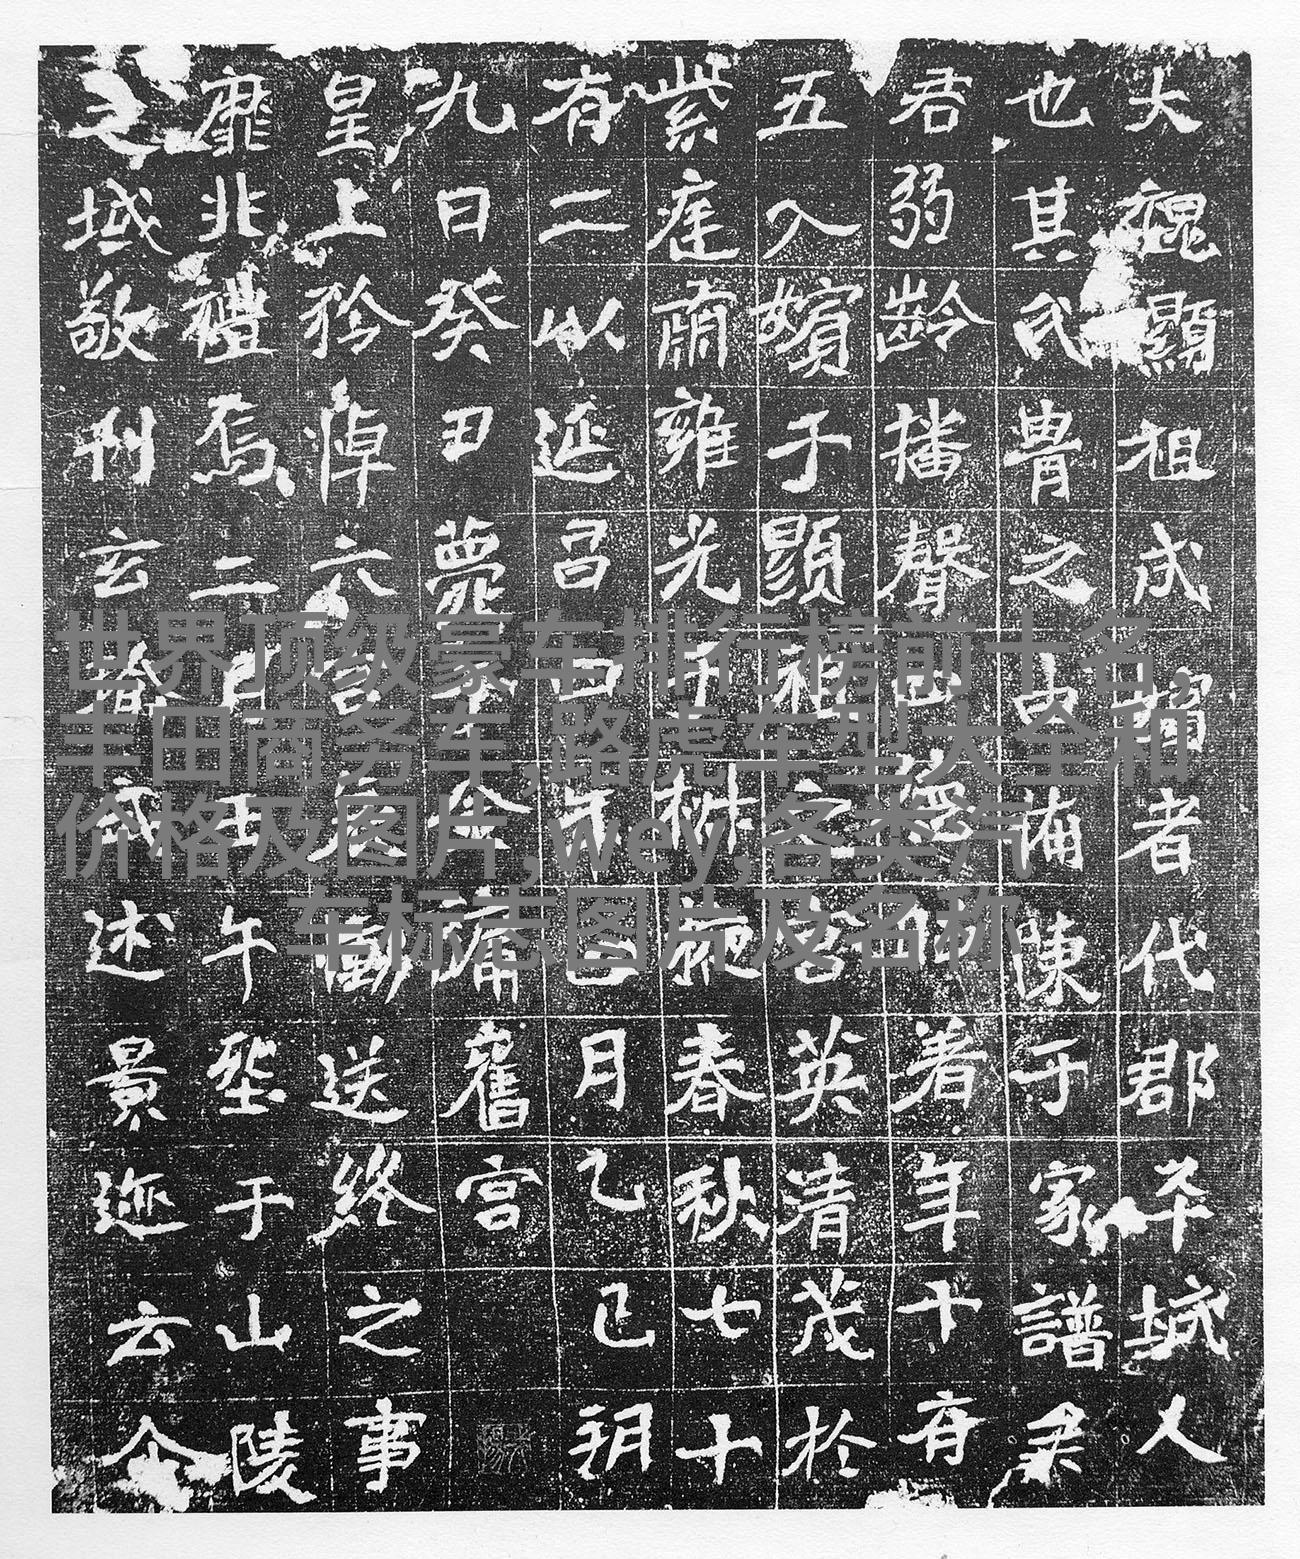 大魏顯祖成嬪者代郡平城人
也其氏冑之由備陳于家譜矣
君弱齡播聲著年十有
五入嬪于顯祖之宮英清茂於
紫庭肅雍光于椒掖春秋七十
有二以延昌四年正月乙巳朔
九日癸丑薨于金墉舊宮
皇上矜悼六宮哀慟送終之事
靡非禮焉二月壬午塟于山陵
之域敬刊玄式述景迹云尒
世界顶级豪车排行榜前十名,
丰田商务车,路虎车型大全和
价格及图片,wey,各类汽
车标志图片及名称